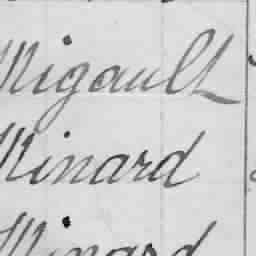 Migault
Minard
Minard